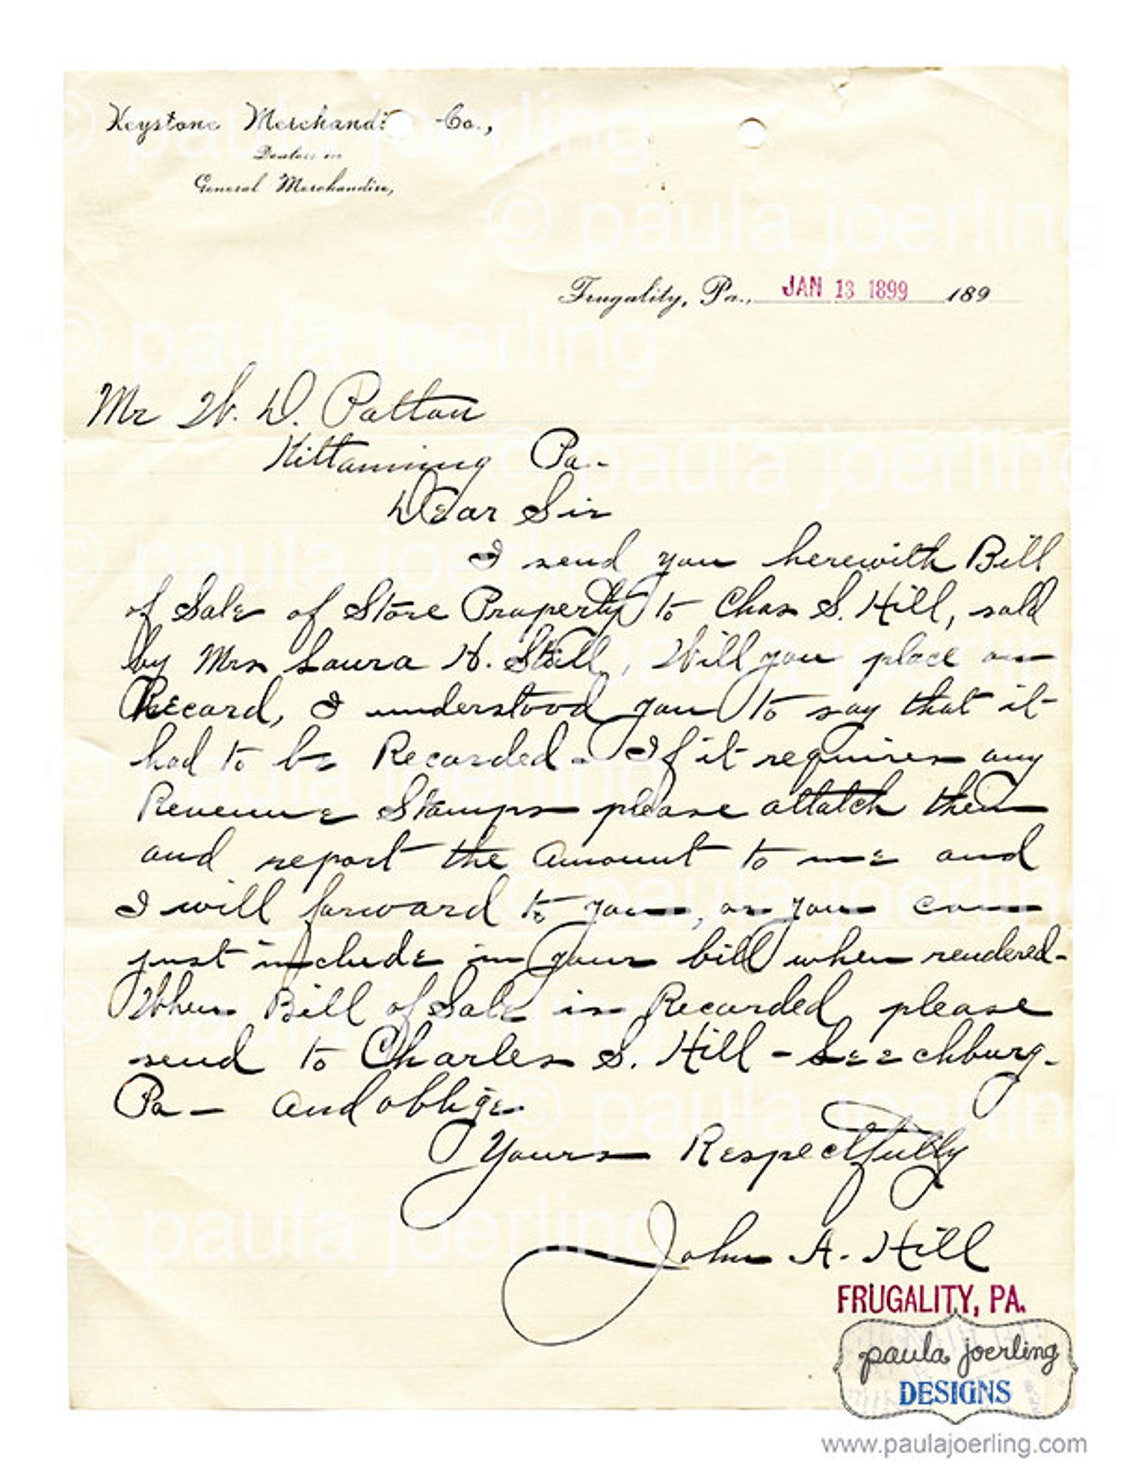 Keystone Merchandi Co.,
Dealers in
General Merchandise,
Frugality, Pa., JAN 13 1899 189
Mr W. D. Patton
Kittanning Pa-
Dear Sir
I send you herewith Bill
of Sale of Store Property to Chas S. Hill, sold
by Mrs Laura H. Still, Will you place on
Record, I understood you to say that it
had to be Recorded - If it requires any
Revenue Stamps please attatch them
and report the amount to me and
I will forward to you, or you can
just include in your bill when rendered-
When Bill of Sale is Recorded please
send to Charles S. Hill - Leechburg-
Pa- and oblige
Yours Respectfully
John A. Hill
FRUGALITY, PA.
paula joerling
DESIGNS
www.paulajoerling.com
© paula joerling
© paula joerling
© paula joerling
© paula joerling
© paula joerling
© paula joerling
© paula joerling
© paula joerling
© paula joerling